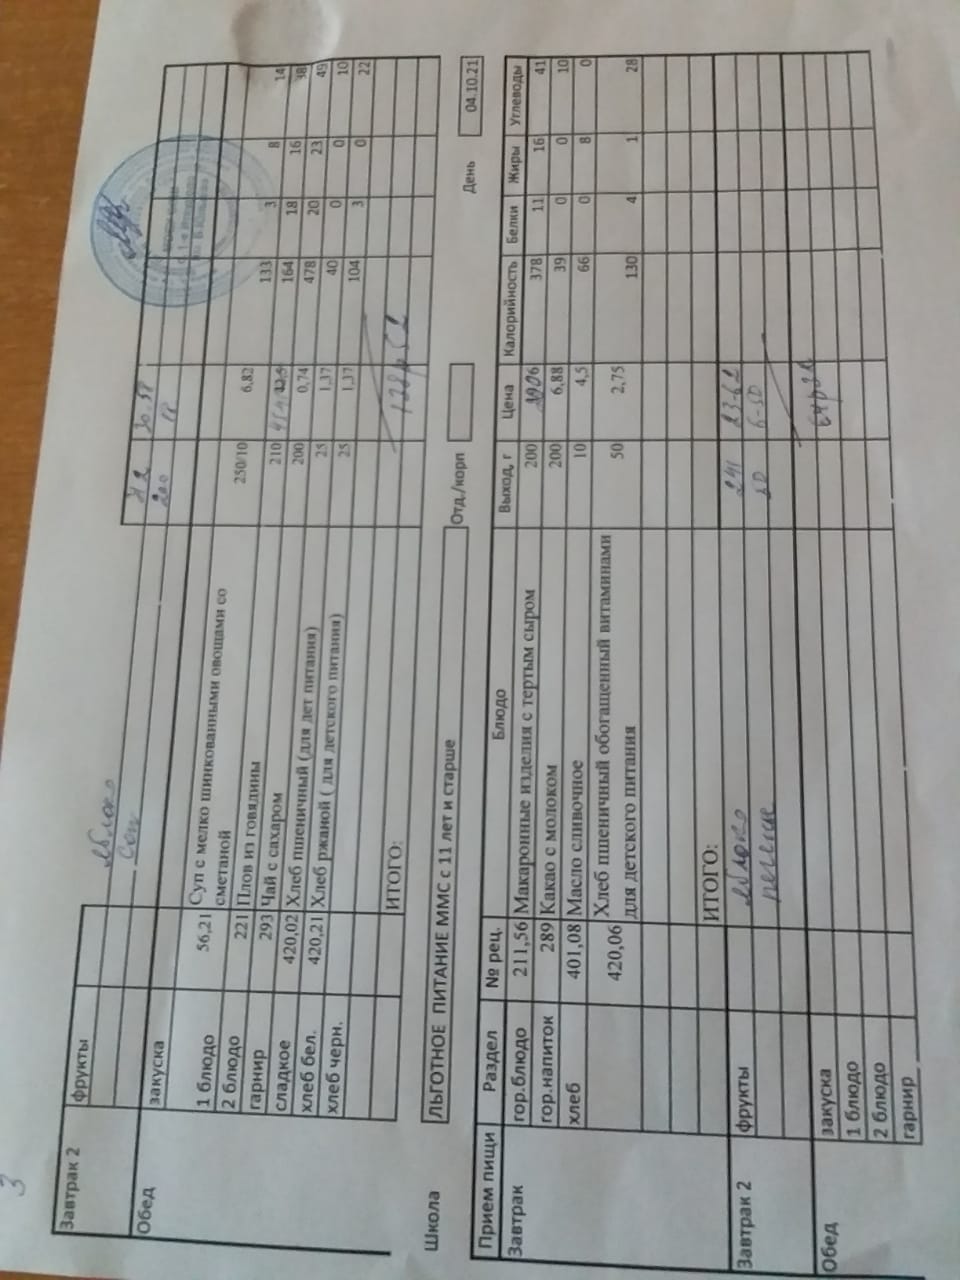 3
Завтрак 2 фрукты яблоко 30-58
сок 200
Обед закуска
1 блюдо 56,21 Суп с мелко шинкованными овощами со сметаной 250/10 6,82 133 3 8 14
2 блюдо 221 Плов из говядины 210 164 18 16 38
гарнир 293 Чай с сахаром 200 0,74 478 20 23 49
сладкое 420,02 Хлеб пшеничный (для дет питания) 25 1,37 40 0 0 10
хлеб бел. 420,21 Хлеб ржаной ( для детского питания) 25 1,37 104 3 0 22
хлеб черн.
ИТОГО: 128р 52
Школа ЛЬГОТНОЕ ПИТАНИЕ ММС с 11 лет и старше Отд./корп День 04.10.21
Прием пищи Раздел № рец. Блюдо Выход, г Цена Калорийность Белки Жиры Углеводы
Завтрак гор.блюдо 211,56 Макаронные изделия с тертым сыром 200 378 11 16 41
гор.напиток 289 Какао с молоком 200 6,88 39 0 0 10
хлеб 401,08 Масло сливочное 10 4,5 66 0 8 0
420,06 Хлеб пшеничный обогащенный витаминами для детского питания 50 2,75 130 4 1 28
ИТОГО:
Завтрак 2 фрукты яблоко 23-62
печенье 20 6-50
Обед закуска
1 блюдо
2 блюдо
гарнир